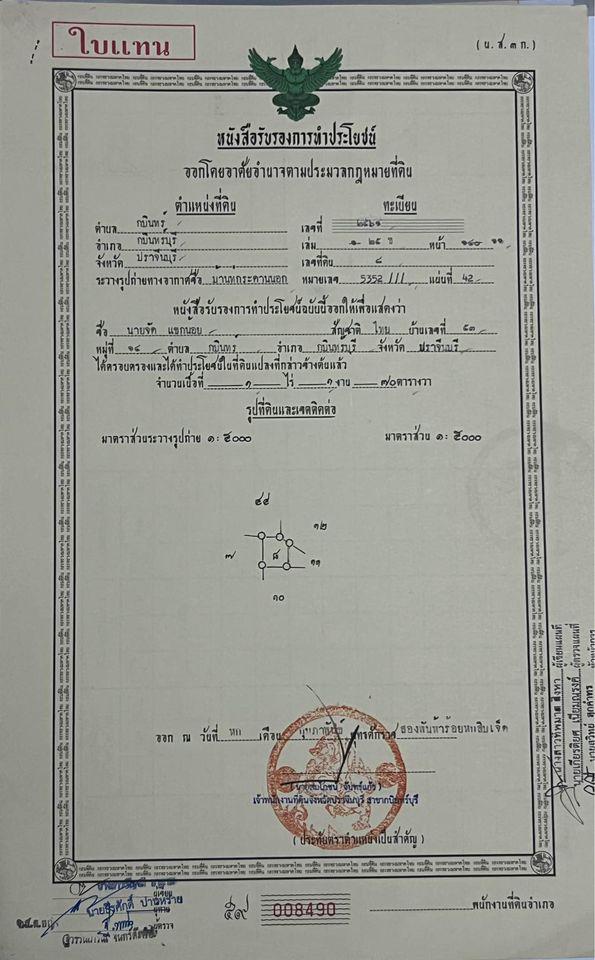 ใบแทน
(น.ส.๓ ก.)
หนังสือรับรองการทำประโยชน์
ออกโดยอาศัยอำนาจตามประมวลกฎหมายที่ดิน
ตำแหน่งที่ดิน ทะเบียน
ตำบล กบินทร์ เลขที่ ๒๕๖๑
อำเภอ กบินทร์บุรี เล่ม หน้า
จังหวัด ปราจีนบุรี เลขที่ดิน ๘
ระวางรูปถ่ายทางอากาศชื่อ บ้านหนกระดานนอก หมายเลข 5352 III แผ่นที่ 42
หนังสือรับรองการทำประโยชน์ฉบับนี้ออกให้เพื่อแสดงว่า
ชื่อ นายจัด แขกน้อย สัญชาติ ไทย บ้านเลขที่ ๕๓
หมู่ที่ ๑๔ ตำบล กบินทร์ อำเภอ กบินทร์บุรี จังหวัด ปราจีนบุรี
ได้ครอบครองและได้ทำประโยชน์ในที่ดินแปลงที่กล่าวข้างต้นแล้ว
จำนวนเนื้อที่ ๑ ไร่ ๑ งาน ๗๐ ตารางวา
รูปที่ดินและเขตติดต่อ
มาตราส่วนระวางรูปถ่าย ๑ : ๕๐๐๐ มาตราส่วน ๑ : ๕๐๐๐
๔๔
๑๒
๗ ๘ ๑๑
๑๐
ออก ณ วันที่ หก เดือน กุมภาพันธ์ พุทธศักราช สองพันห้าร้อยหกสิบเจ็ด
เจ้าพนักงานที่ดินจังหวัดปราจีนบุรี สาขากบินทร์บุรี
(ประทับตราตำแหน่งเป็นสำคัญ)
ผู้เขียนแผนที่
ผู้ตรวจแผนที่
ผู้เขียน
นายธีรศักดิ์
ผู้ตรวจ
๕๙ 008490 พนักงานที่ดินอำเภอ